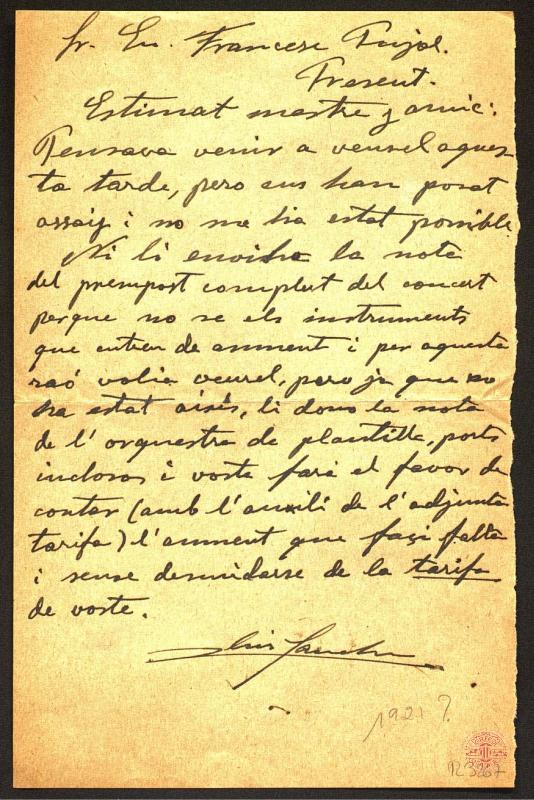 Sr. En. Francesc Pujol.
Present.
Estimat mestre y amic:
Pensava venir a veurel aques
ta tarde, pero ens han posat
assaig i no me ha estat possible.
Ni li envio la nota
del presupost complert del concert
perque no se els instruments
que entren de aument i per aquesta
raó volia veurel, pero ja que no
ha estat aixís, li dono la nota
de l'orquestra de plantilla, ports
inclosos i voste fará el favor de
contar (amb l'auxili de l'adjunta
tarifa) l'aument que façi falta
i sense descuidarse de la tarifa
de voste.
Lluis
1921?